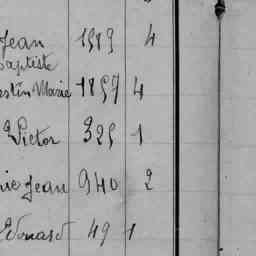 Jean 1989 4
Baptiste
estin Marie 1857 4
Victor 325 1
rie Jean 940 2
Edouard 49 1